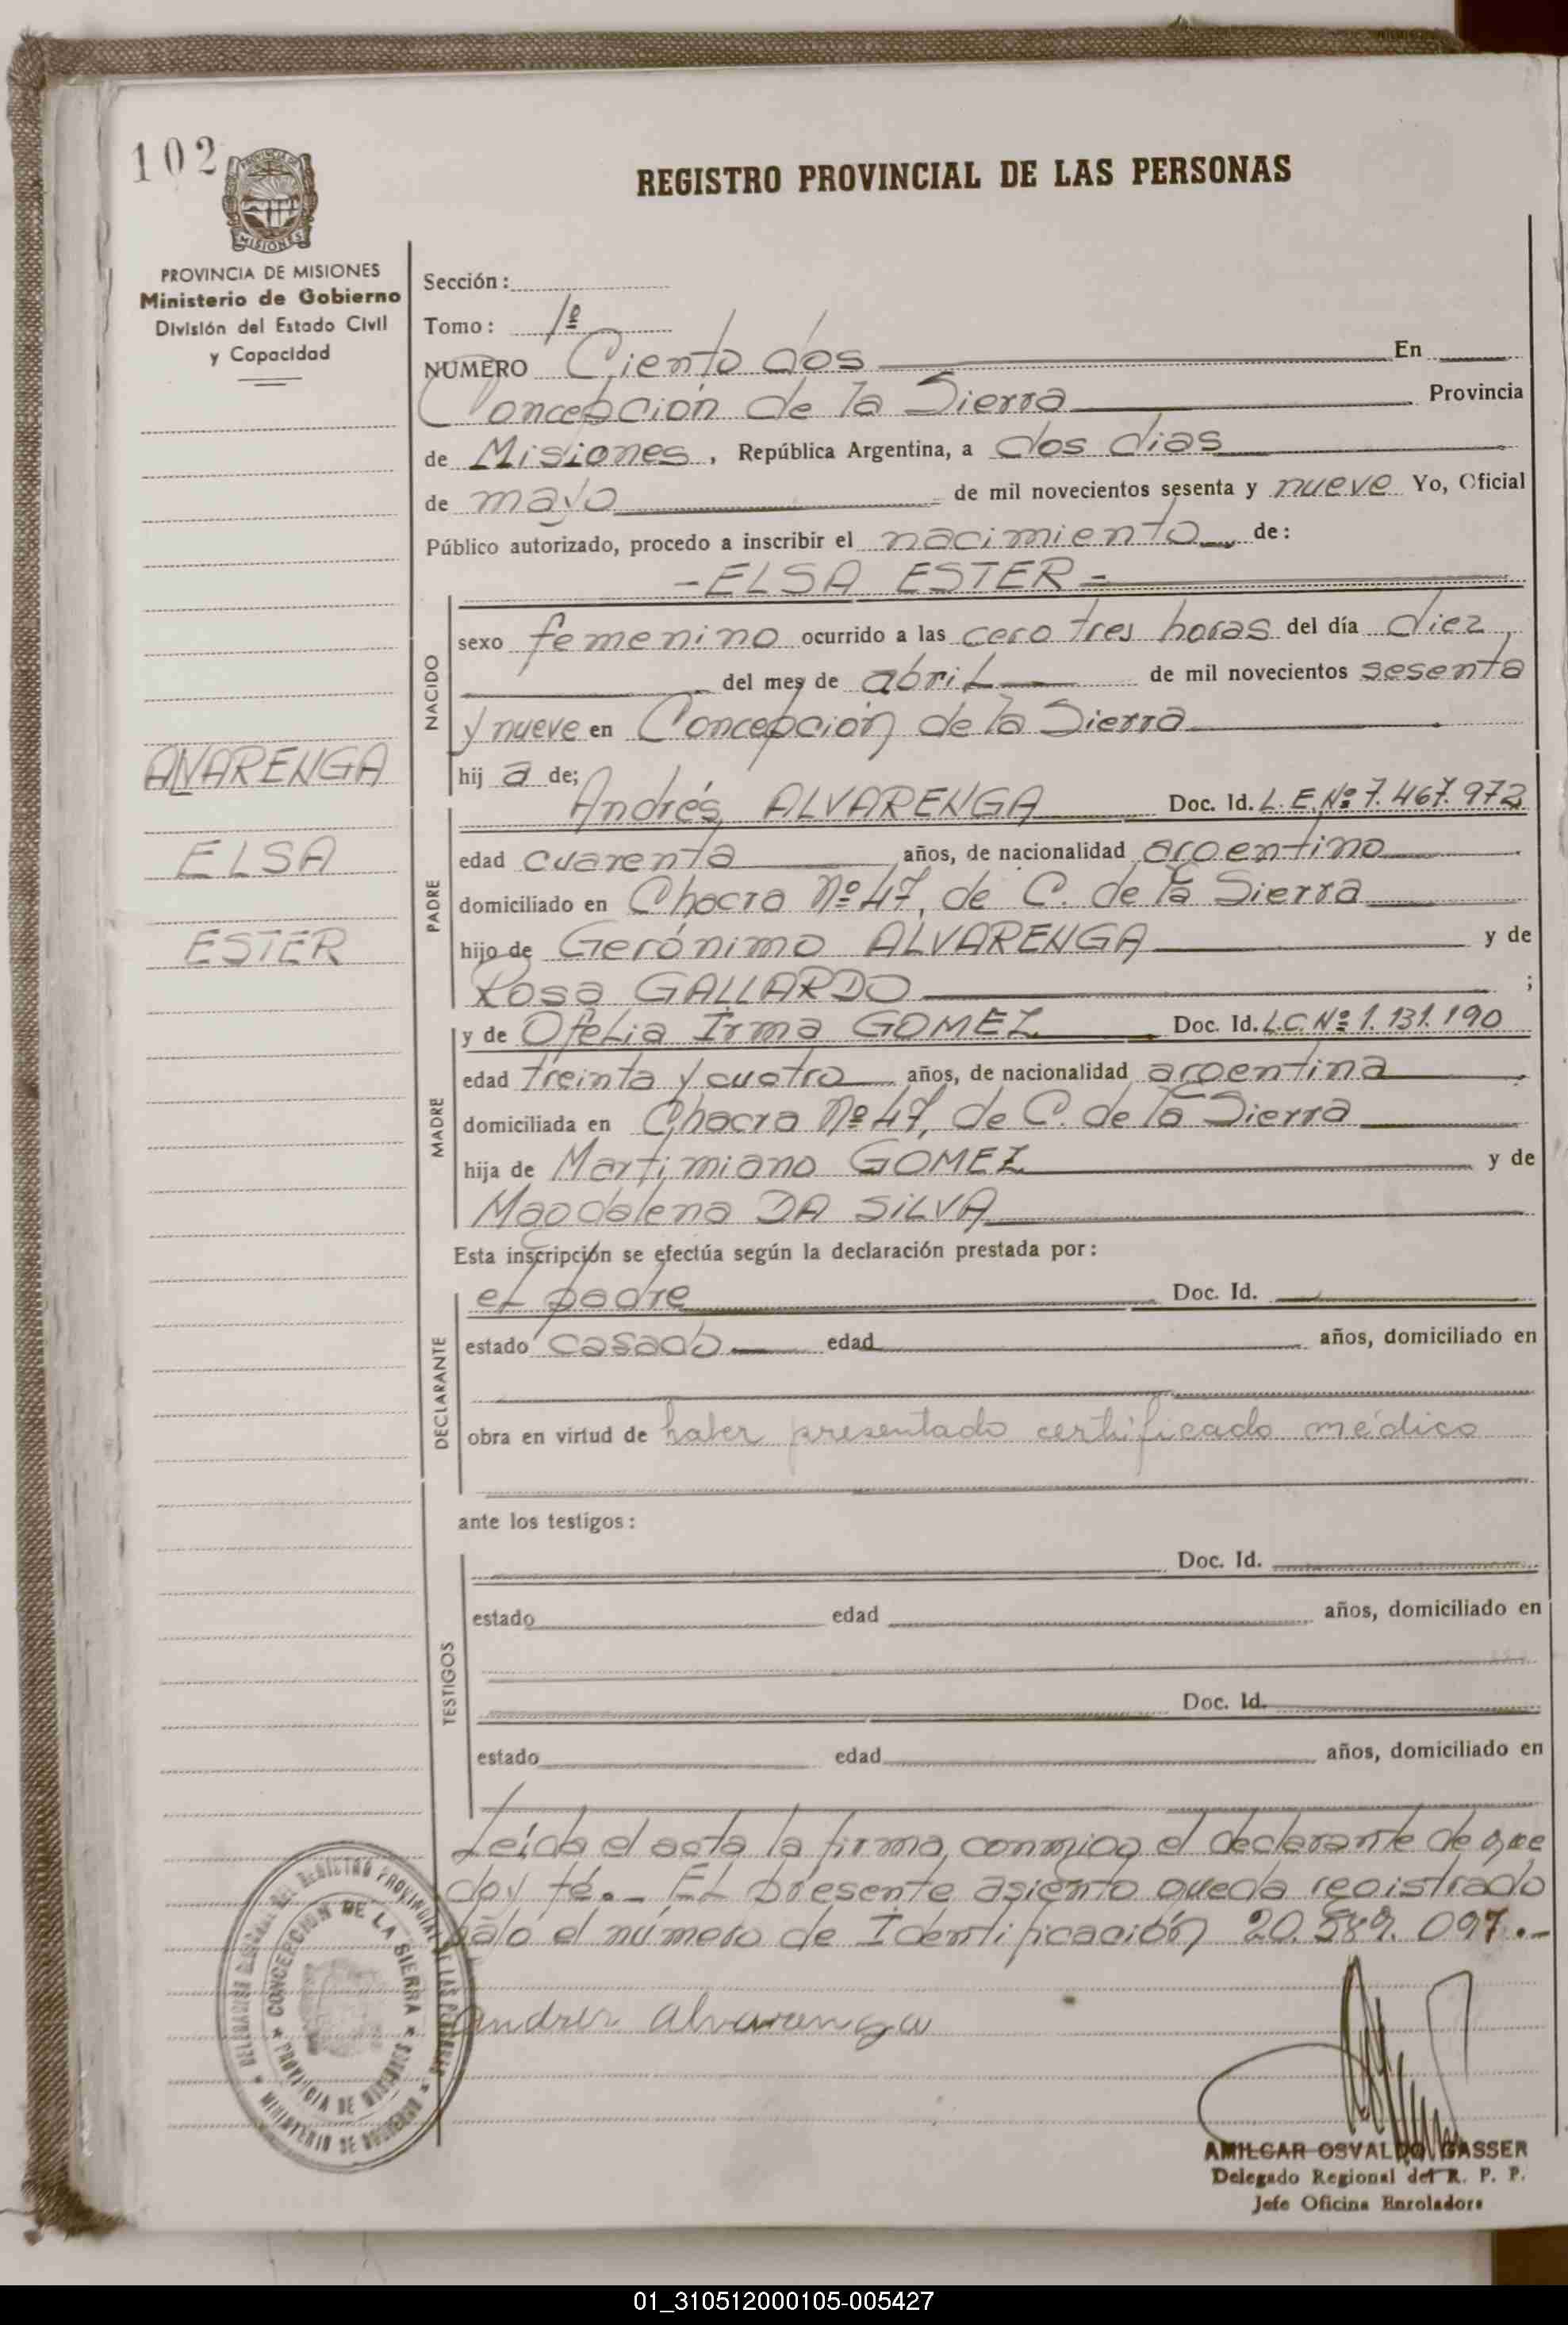 102
PROVINCIA DE MISIONES
Ministerio de Gobierno
División del Estado Civil
y Capacidad
ALVARENGA
ELSA
ESTER
REGISTRO PROVINCIAL DE LAS PERSONAS
Sección:
Tomo: 1º
NUMERO Ciento dos En
Concepción de la Sierra Provincia
de Misiones, República Argentina, a dos dias
de mayo de mil novecientos sesenta y nueve Yo, Oficial
Público autorizado, procedo a inscribir el nacimiento de:
- ELSA ESTER -
NACIDO
sexo femenino ocurrido a las cero tres horas del día diez
del mes de abril de mil novecientos sesenta
y nueve en Concepción de la Sierra
hij a de;
PADRE
Andrés ALVARENGA Doc. Id. L.E.Nº 7.467.972
edad cuarenta años, de nacionalidad argentino
domiciliado en Chacra Nº 47, de C. de la Sierra
hijo de Gerónimo ALVARENGA y de
Rosa GALLARDO ;
MADRE
y de Ofelia Irma GOMEZ Doc. Id. L.C.Nº 1.131.190
edad treinta y cuatro años, de nacionalidad argentina
domiciliada en Chacra Nº 47, de C. de la Sierra
hija de Martimiano GOMEZ y de
Magdalena DA SILVA
Esta inscripción se efectúa según la declaración prestada por:
DECLARANTE
el padre Doc. Id.
estado casado edad años, domiciliado en
obra en virtud de haber presentado certificado médico
ante los testigos:
TESTIGOS
Doc. Id.
estado edad años, domiciliado en
Doc. Id.
estado edad años, domiciliado en
Leída el acta la firma conmigo el declarante de que
doy fé.- El presente asiento queda registrado
bajo el número de Identificación 20.589.097.-
Andres Alvarenga
DELEGACION REGIONAL DEL REGISTRO PROVINCIAL DE LAS PERSONAS
MINISTERIO DE GOBIERNO
CONCEPCION DE LA SIERRA
PROVINCIA DE MISIONES
AMILCAR OSVALDO GASSER
Delegado Regional del R. P. P.
Jefe Oficina Enroladora
01_310512000105-005427